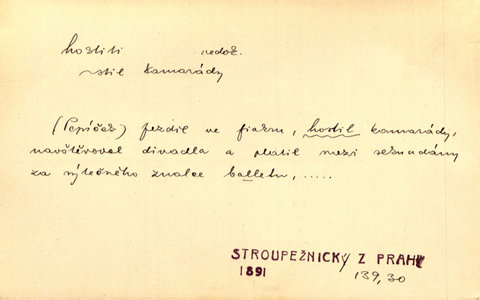 hostiti nedok.
hostil kamarády
(Pepíček) jezdil ve fiakru, hostil kamarády,
navštěvoval divadla a platil mezi sekundány
za výtečného znalce balletu, .....
STROUPEŽNICKÝ Z PRAHY
1891 139,30